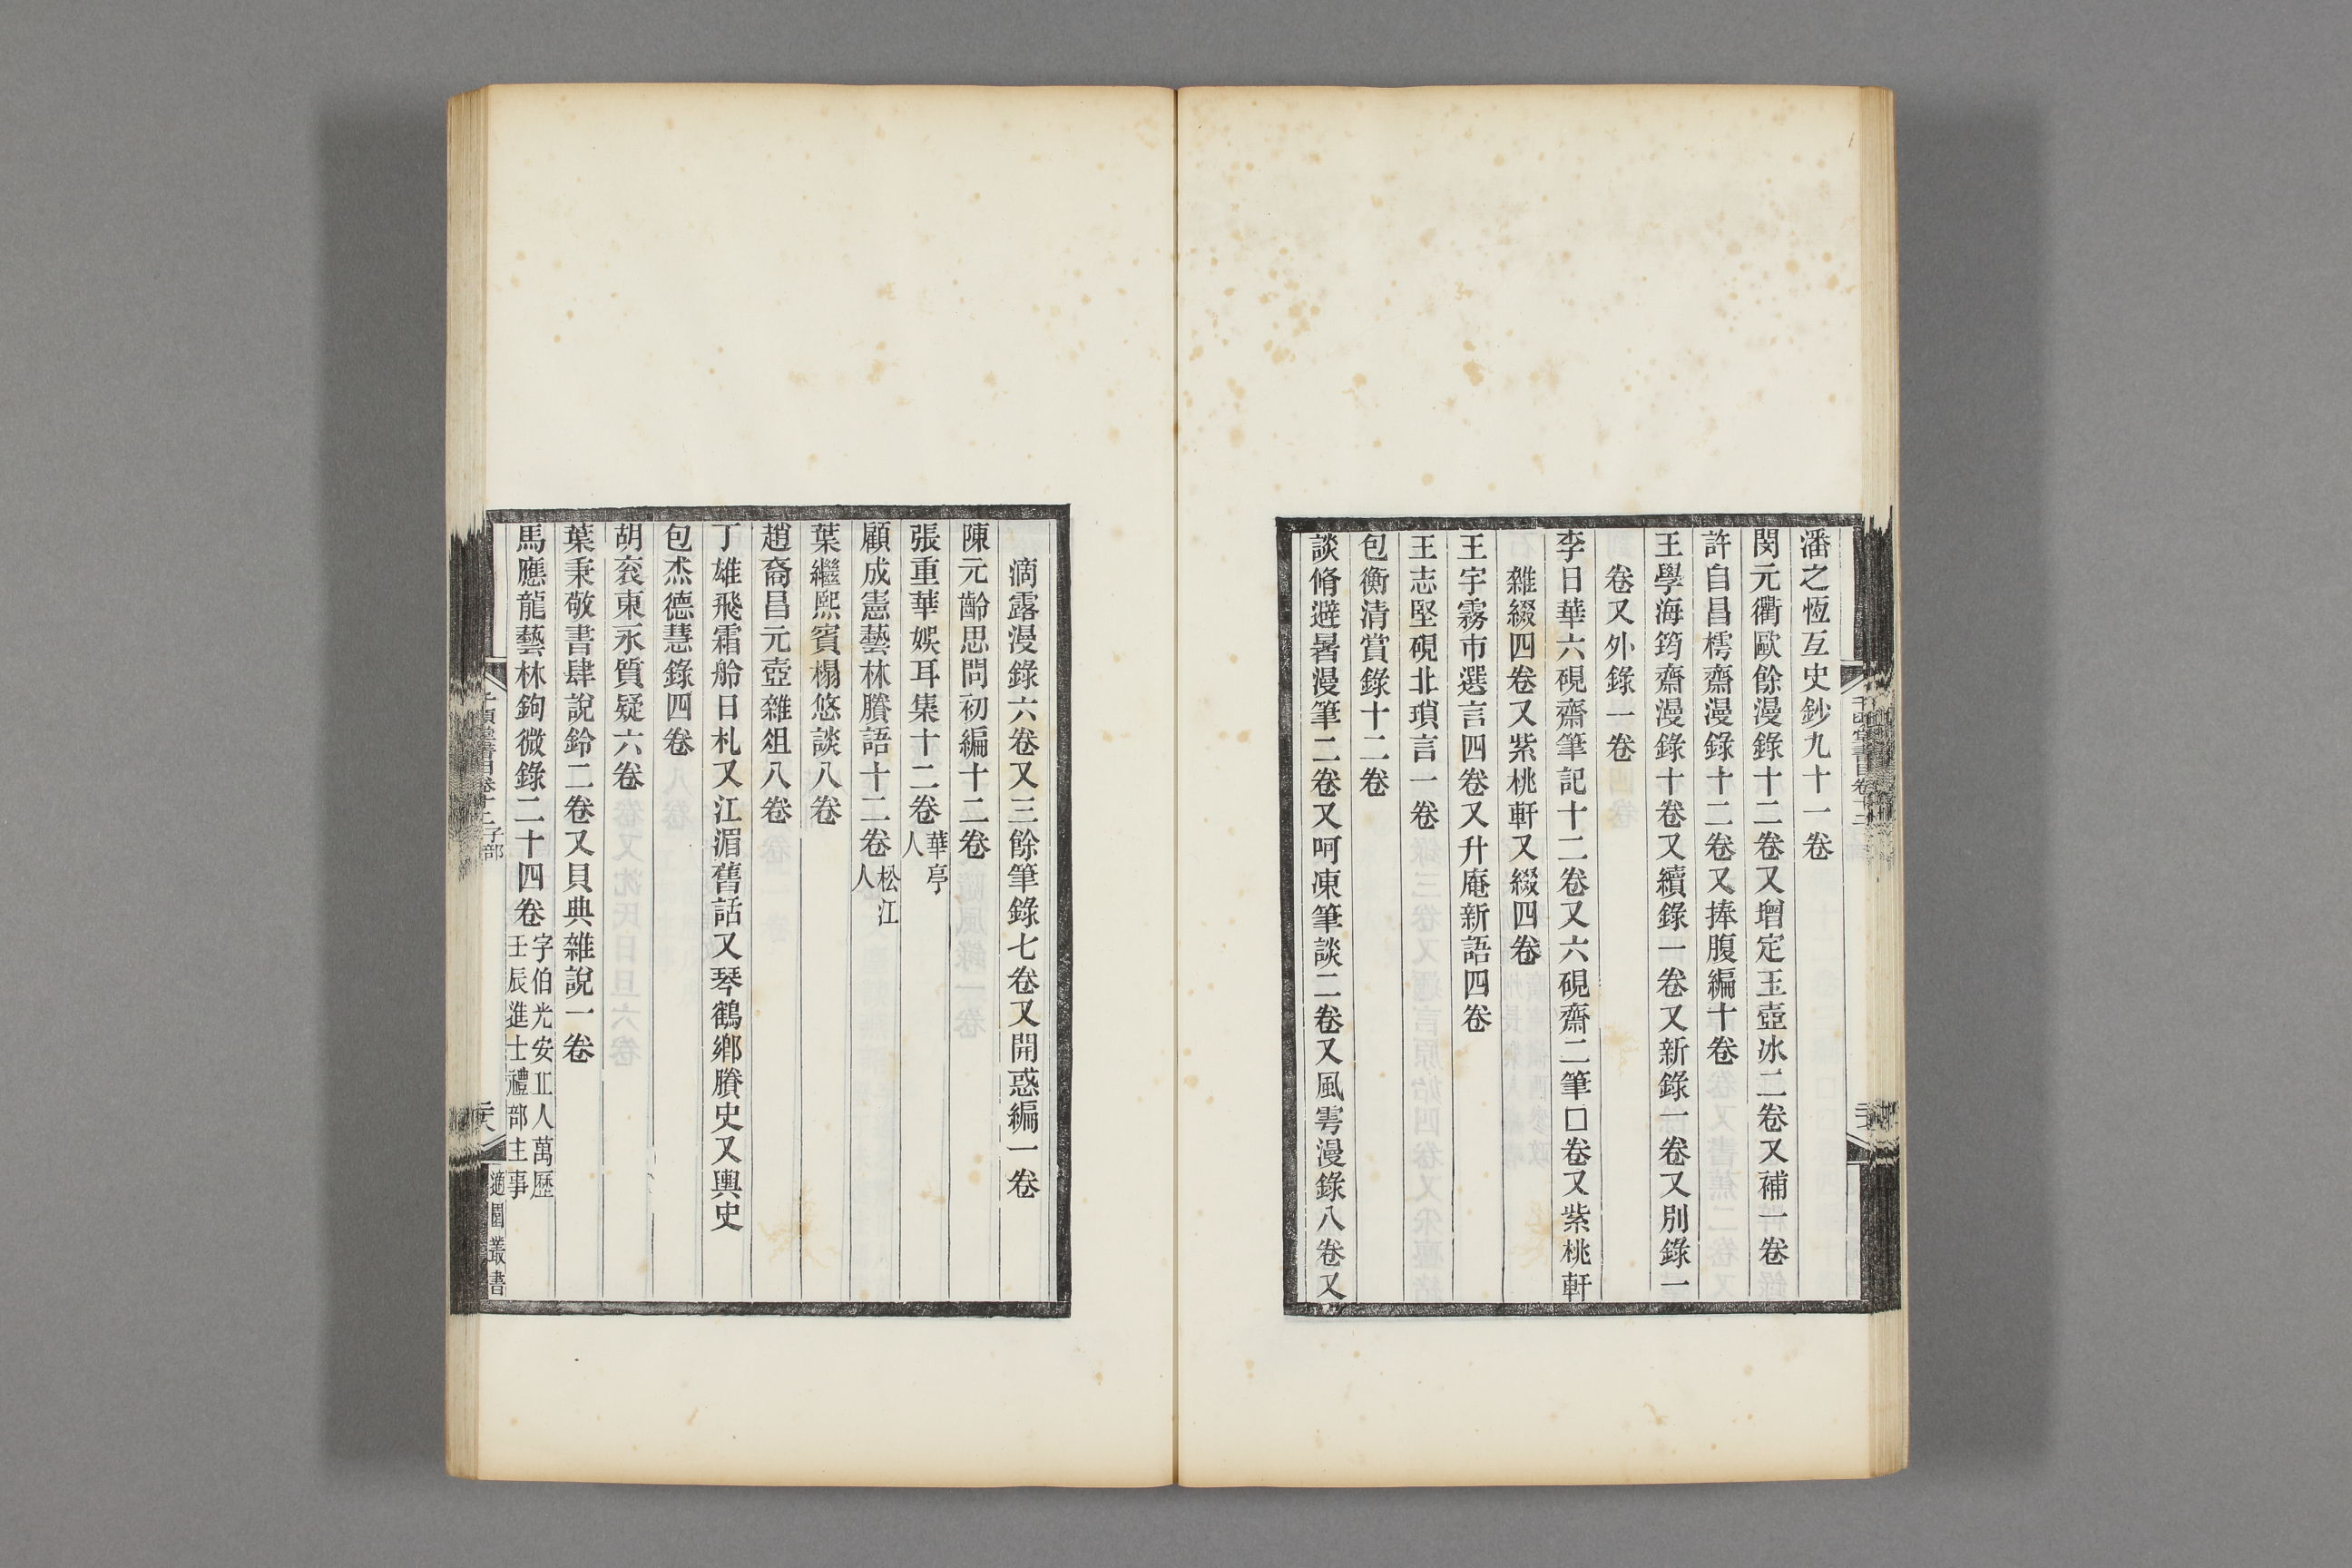 潘之恆亙史鈔九十一卷
閔元衢歐餘漫錄十二卷又增定玉壺冰二卷又補一卷
許自昌樗齋漫錄十二卷又捧腹編十卷
王學海筠齋漫錄十卷又續錄一卷又新錄一卷又別錄一
卷又外錄一卷
李日華六硯齋筆記十二卷又六硯齋二筆□卷又紫桃軒
雜綴四卷又紫桃軒又綴四卷
王宇霧市選言四卷又升庵新語四卷
王志堅硯北瑣言一卷
包衡清賞錄十二卷
談脩避暑漫筆二卷又呵凍筆談二卷又風雩漫錄八卷又
滴露漫錄六卷又三餘筆錄七卷又開惑編一卷
陳元齡思問初編十二卷
張重華娛耳集十二卷華亭
人
顧成憲藝林賸語十二卷松江
人
葉繼熙賓榻悠談八卷
趙裔昌元壺雜俎八卷
丁雄飛霜舲日札又江湄舊話又琴鶴鄉賸史又輿史
包杰德慧錄四卷
胡袞東永質疑六卷
葉秉敬書肆說鈴二卷又貝典雜說一卷
馬應龍藝林鉤微錄二十四卷字伯光安丘人萬歷
壬辰進士禮部主事
千頃堂書目卷十二 子部
二十六
適園叢書